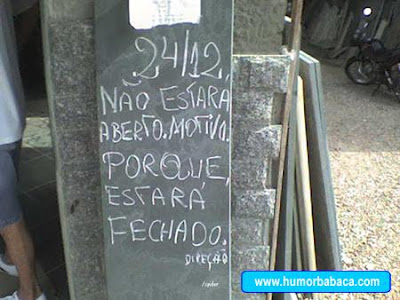 24/12,
NÃO ESTARÁ
ABERTO. MOTIVO.
PORQUE,
ESTARÁ
FECHADO.
DIREÇÃO
www.humorbabaca.com